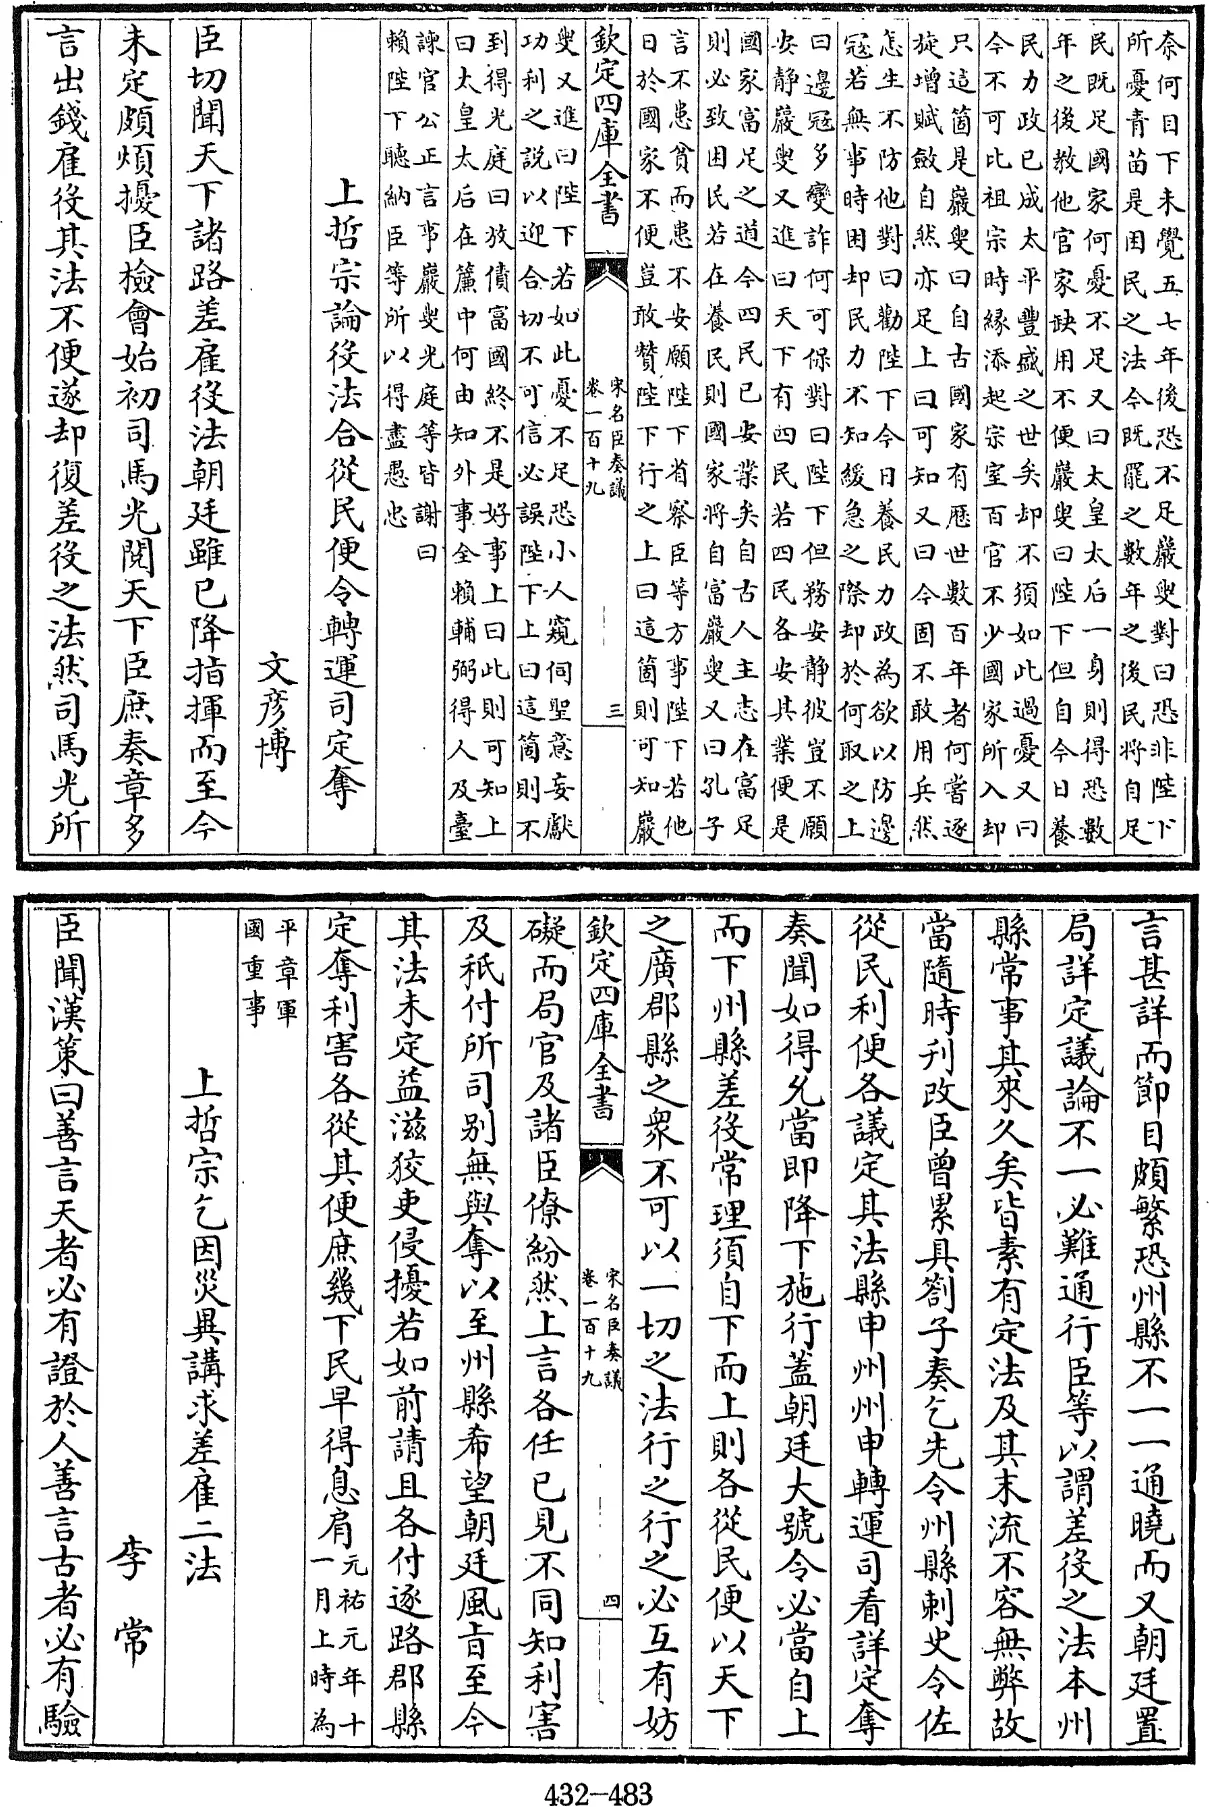 奈何目下未覺五七年後恐不足巖叟對曰恐非陛下
所憂青苗是困民之法今既罷之數年之後民將自足
民既足國家何憂不足又曰太皇太后一身則得恐數
年之後教他官家缺用不便巖叟曰陛下但自今日養
民力政已成太平豐盛之世矣却不須如此過憂又曰
今不可比祖宗時緣添起宗室百官不少國家所入却
只這箇是巖叟曰自古國家有歴世數百年者何嘗逐
旋增賦斂自然亦足上曰可知又曰今固不敢用兵然
怎生不防他對曰勸陛下今日養民力政為欲以防邊
冦若無事時困却民力不知緩急之際却於何取之上
曰邊冦多變詐何可保對曰陛下但務安靜彼豈不願
安靜巖叟又進曰天下有四民若四民各安其業便是
國家富足之道今四民已安業矣自古人主志在富足
則必致困民若在養民則國家將自富巖叟又曰孔子
言不患貧而患不安願陛下省察臣等方事陛下若他
日於國家不便豈敢贊陛下行之上曰這箇則可知巖
欽定四庫全書
宋名臣奏議
卷一百十九
三
叟又進曰陛下若如此憂不足恐小人窺伺聖意妄獻
功利之説以迎合切不可信必誤陛下上曰這箇則不
到得光庭曰放債富國終不是好事上曰此則可知上
曰太皇太后在簾中何由知外事全賴輔弼得人及臺
諫官公正言事巖叟光庭等皆謝曰
賴陛下聽納臣等所以得盡愚忠
上哲宗論役法合從民便令轉運司定奪
文彦博
臣切聞天下諸路差雇役法朝廷雖已降指揮而至今
未定頗煩擾臣檢會始初司馬光閱天下臣庶奏章多
言出錢雇役其法不便遂却復差役之法然司馬光所
言甚詳而節目頗繁恐州縣不一一通曉而又朝廷置
局詳定議論不一必難通行臣等以謂差役之法本州
縣常事其來久矣皆素有定法及其末流不容無弊故
當隨時刋改臣曾累具劄子奏乞先令州縣刺史令佐
從民利便各議定其法縣申州州申轉運司看詳定奪
奏聞如得允當即降下施行蓋朝廷大號令必當自上
而下州縣差役常理須自下而上則各從民便以天下
之廣郡縣之衆不可以一切之法行之行之必互有妨
欽定四庫全書
宋名臣奏議
卷一百十九
四
礙而局官及諸臣僚紛然上言各任已見不同知利害
及秖付所司别無與奪以至州縣希望朝廷風旨至今
其法未定益滋狡吏侵擾若如前請且各付逐路郡縣
定奪利害各從其便庶幾下民早得息肩元祐元年十
一月上時為
平章軍
國重事
上哲宗乞因災異講求差雇二法
李常
臣聞漢策曰善言天者必有證於人善言古者必有驗
432-483